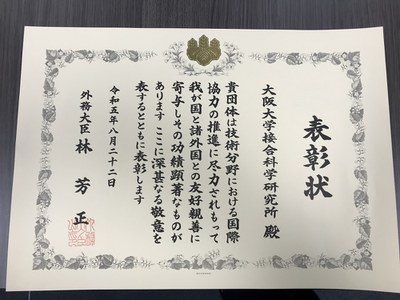 表彰状
大阪大学接合科学研究所 殿
貴団体は技術分野における国際
協力の推進に尽力されもって
我が国と諸外国との友好親善に
寄与しその功績顕著なものが
あります ここに深甚なる敬意を
表するとともに表彰します
令和五年八月二十二日
外務大臣 林 芳正